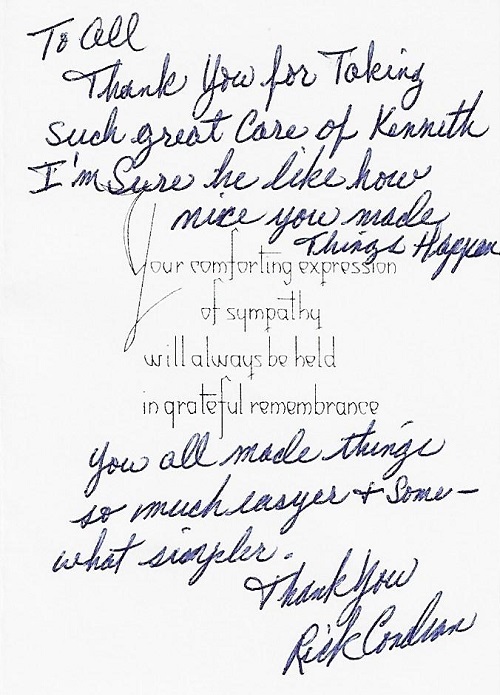 To All
Thank You for Taking
such great Care of Kenneth
I'm Sure he like how
nice you made
Things Happen
Your comforting expression
of sympathy
will always be held
in grateful remembrance
You all made things
so much easyer & Some-
what simpler.
Thank You
Rick